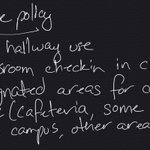 e policy
hallway use
room checkin in c
gnated areas for
(cafeteria, some
campus, other area